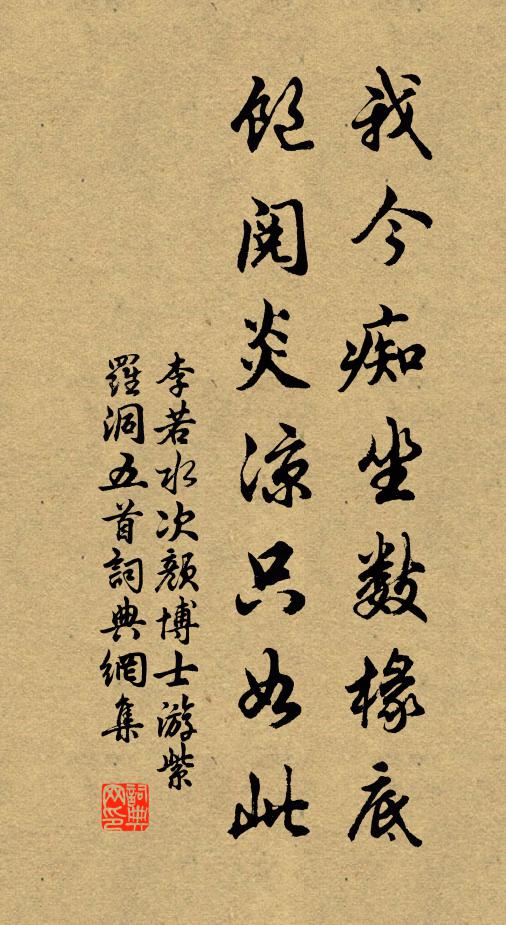 我今痴坐数椽底
飽閱炎涼只如此
李若水次顏博士游紫
羅洞五首詞典網集
詞典
网印